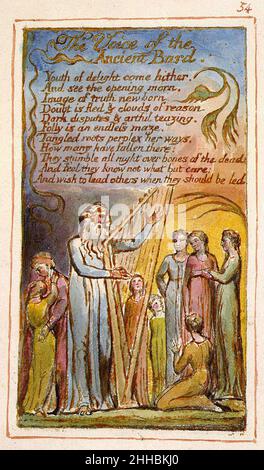 54
The Voice of the
Ancient Bard.
Youth of delight come hither.
And see the opening morn,
Image of truth new born
Doubt is fled & clouds of reason
Dark disputes & artful teazing.
Folly is an endless maze.
Tangled roots perplex her ways.
How many have fallen there!
They stumble all night over bones of the dead
And feel they know not what but care;
And wish to lead others when they should be led.